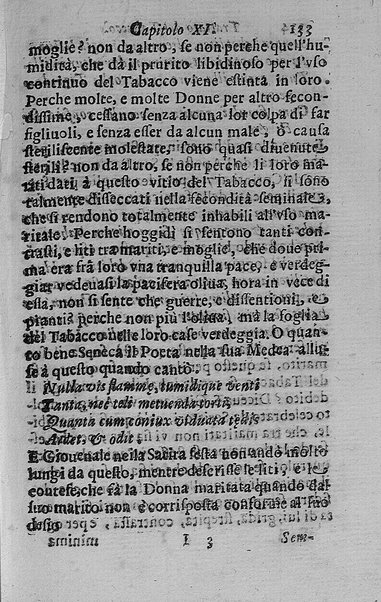 Capitolo XI. 133
moglie? non da altro, se non perche quell'hu-
midità, che dà il prurito libidinoso per l'vso
continuo del Tabacco viene estinta in loro.
Perche molte, e molte Donne per altro fecon-
dissime, cessano senza alcuna lor colpa di far
figliuoli, e senza esser da alcun male, ò causa
steriliscente molestate, sono quasi diuenute
sterili? non da altro, se non perche li loro ma-
riti dati à questo vitio del Tabacco, si sono
talmente disseccati nella fecondità seminale,
che si rendono totalmente inhabili all'vso ma-
ritale. Perche hoggidì si sentono tanti con-
trasti, e liti tra mariti, e moglie, che doue pri-
ma era frà loro vna tranquilla pace, e verdeg-
giar vedeuasi la pacifera oliua, hora in vece di
essa, non si sente che guerre, e dissentioni, e
pianti? perche non più l'oliua, mà la foglia
del Tabacco nelle loro case verdeggia. O quan-
to bene Seneca il Poeta nella sua Medea allu-
se à questo quando cantò.
Nulla vis flammæ, tumidique venti
Tanta, nec teli metuenda torti,
Quanta cum coniux viduata tedis
Ardet, & odit;
E Giouenale nella Satira sesta non andò molto
lungi da questo, mentre descrisse le liti, e le
contese, che fà la Donna maritata quando dal
suo marito non è corrisposta conforme al suo
desio
I 3 Sem-